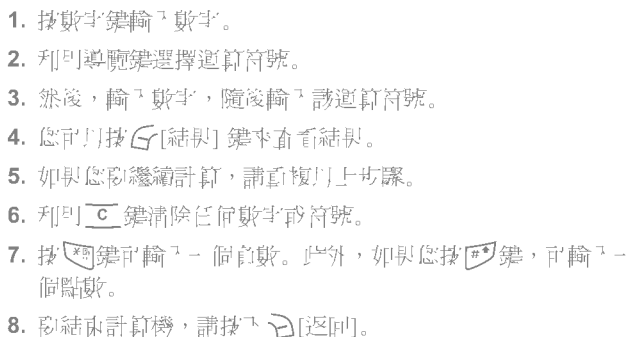 1. 按數字鍵輸入數字。
2. 利用導覽鍵選擇運算符號。
3. 然後,輸入數字,隨後輸入該運算符號。
4. 您可以按 [結果] 鍵來查看結果。
5. 如果您要繼續計算,請重複以上步驟。
6. 利用 C 鍵清除任何數字或符號。
7. 按 * 鍵可輸入一個負數。此外,如果您按 # 鍵,可輸入一
個點數。
8. 要結束計算機,請按下 [返回]。